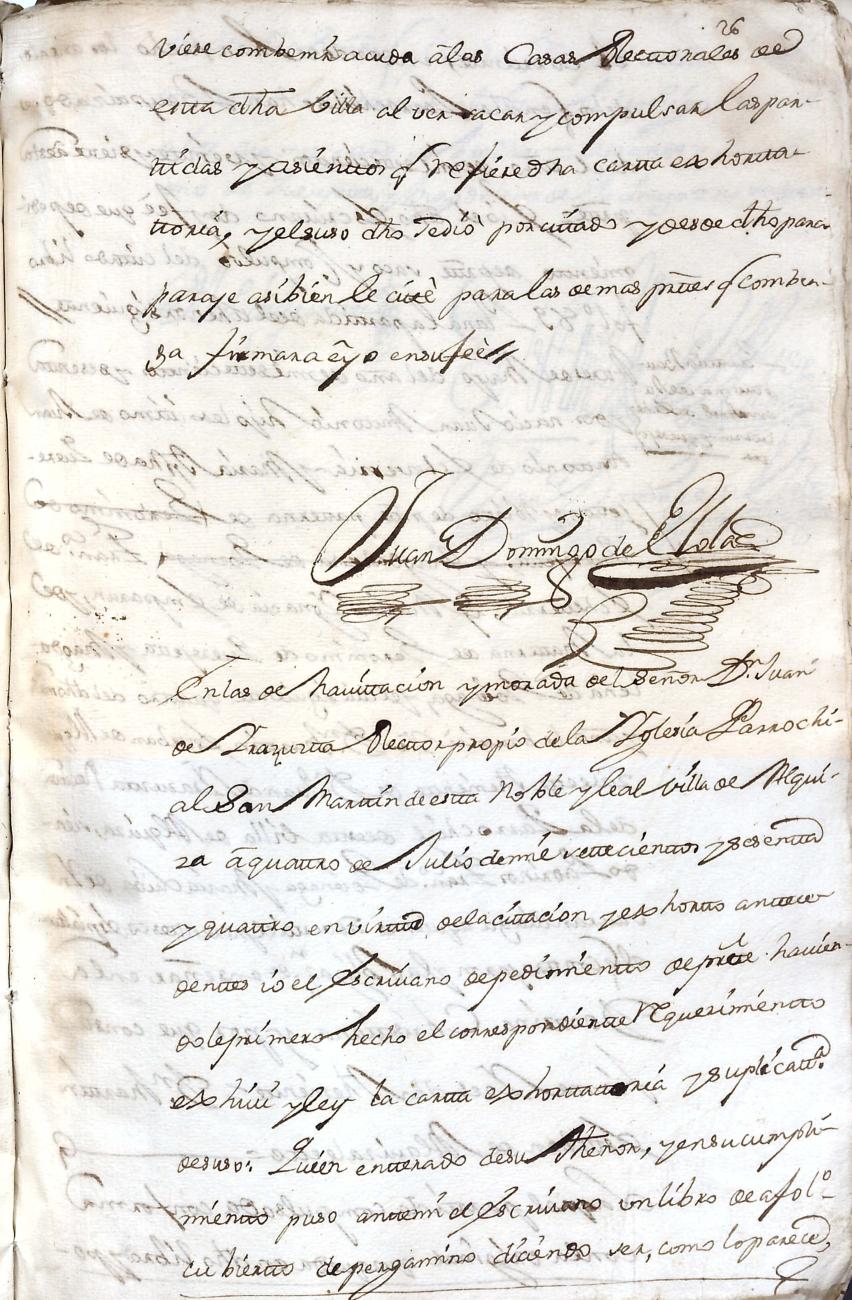 26
viere combenir acuda â las Casas Rectorales de
estta dha billa al ver sacar y compulsar las par-
ttidas y asienttos q refiere dha cartta exhortta-
ttoria, y el suso dho se dió por cittado y desde dho para-
paraje asi bien le citè para las demas prttes q comben-
ga firmara è yo en su feè
Juan Domingo de
En las de havittacion y morada del señor Dn Juan
de Rector propio de la Yglesia Parrochi-
al San Marttin de estta Noble y leal villa de Alqui-
za â quattro de Julio de mil settecienttos y sesentta
y quattro, en virttud de la cittacion y exhortto antteze-
denttes io el Escrivano de pedimentto de prtte havien-
dole primero hecho el correspondientte requerimientto
exhivi y ley la cartta exhorttattoria y suplicattª
de suso: Quien entterado de su thenor, y en su cumpli-
mientto puso antte mi el Escrivano un libro de a folº
cubiertto de pergamino diciendo ser, como lo parece,